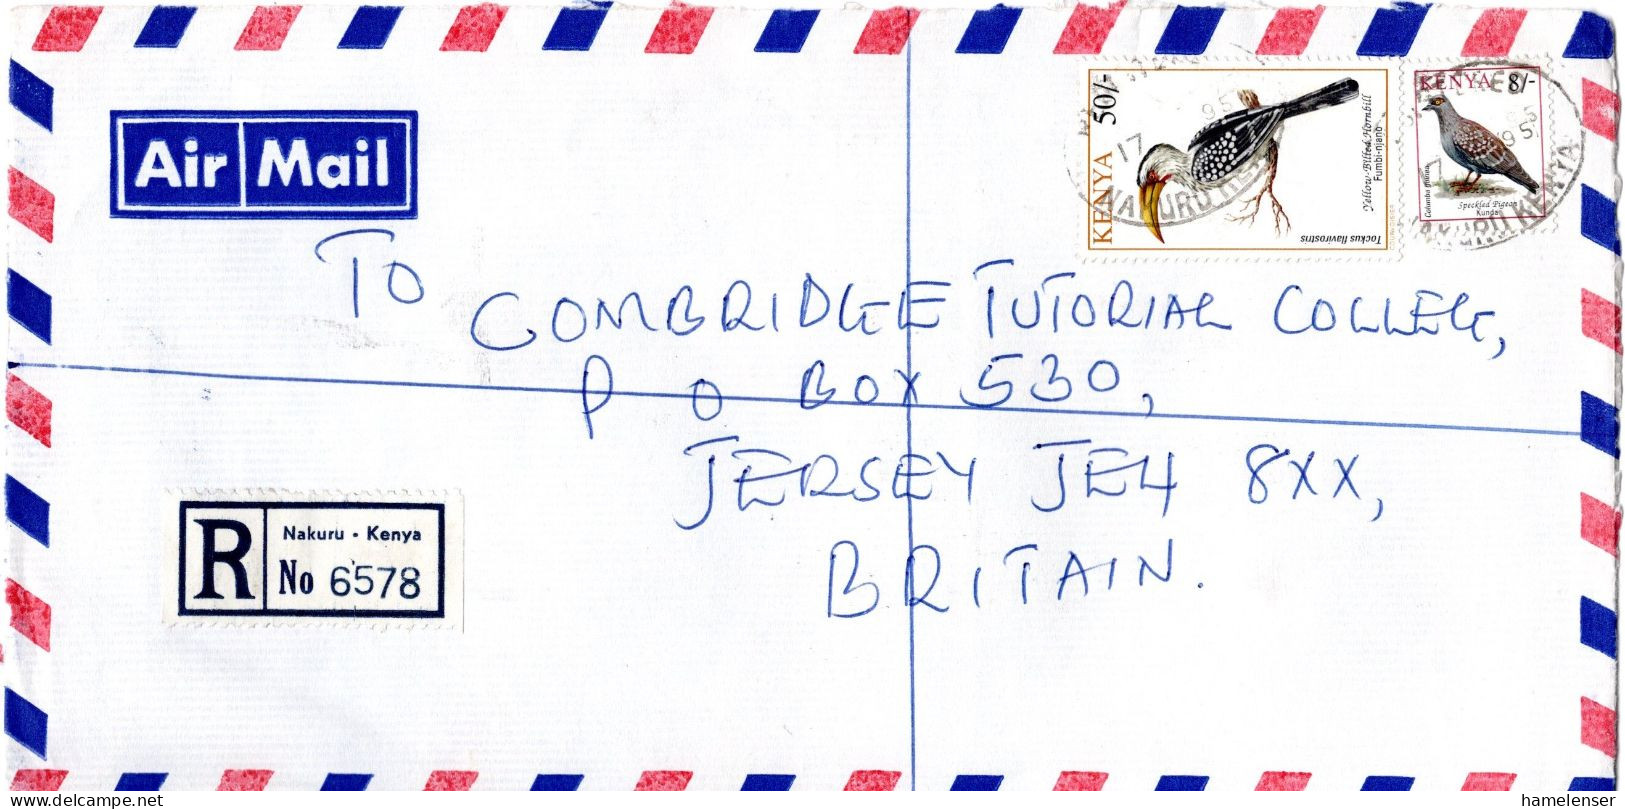 Air Mail
KENYA 50/-
Yellow-Billed Hornbill
Fumbi-njano
Tockus flavirostris
KENYA 8/-
Columba guinea
Speckled Pigeon
Kunda
17
95
NAKURU
95
NAKURU KENYA
TO
COMBRIDGE TUTORIAL COLLEG,
P O BOX 530,
JERSEY JE4 8XX,
BRITAIN.
R
Nakuru - Kenya
No 6578
www.delcampe.net
hamelenser